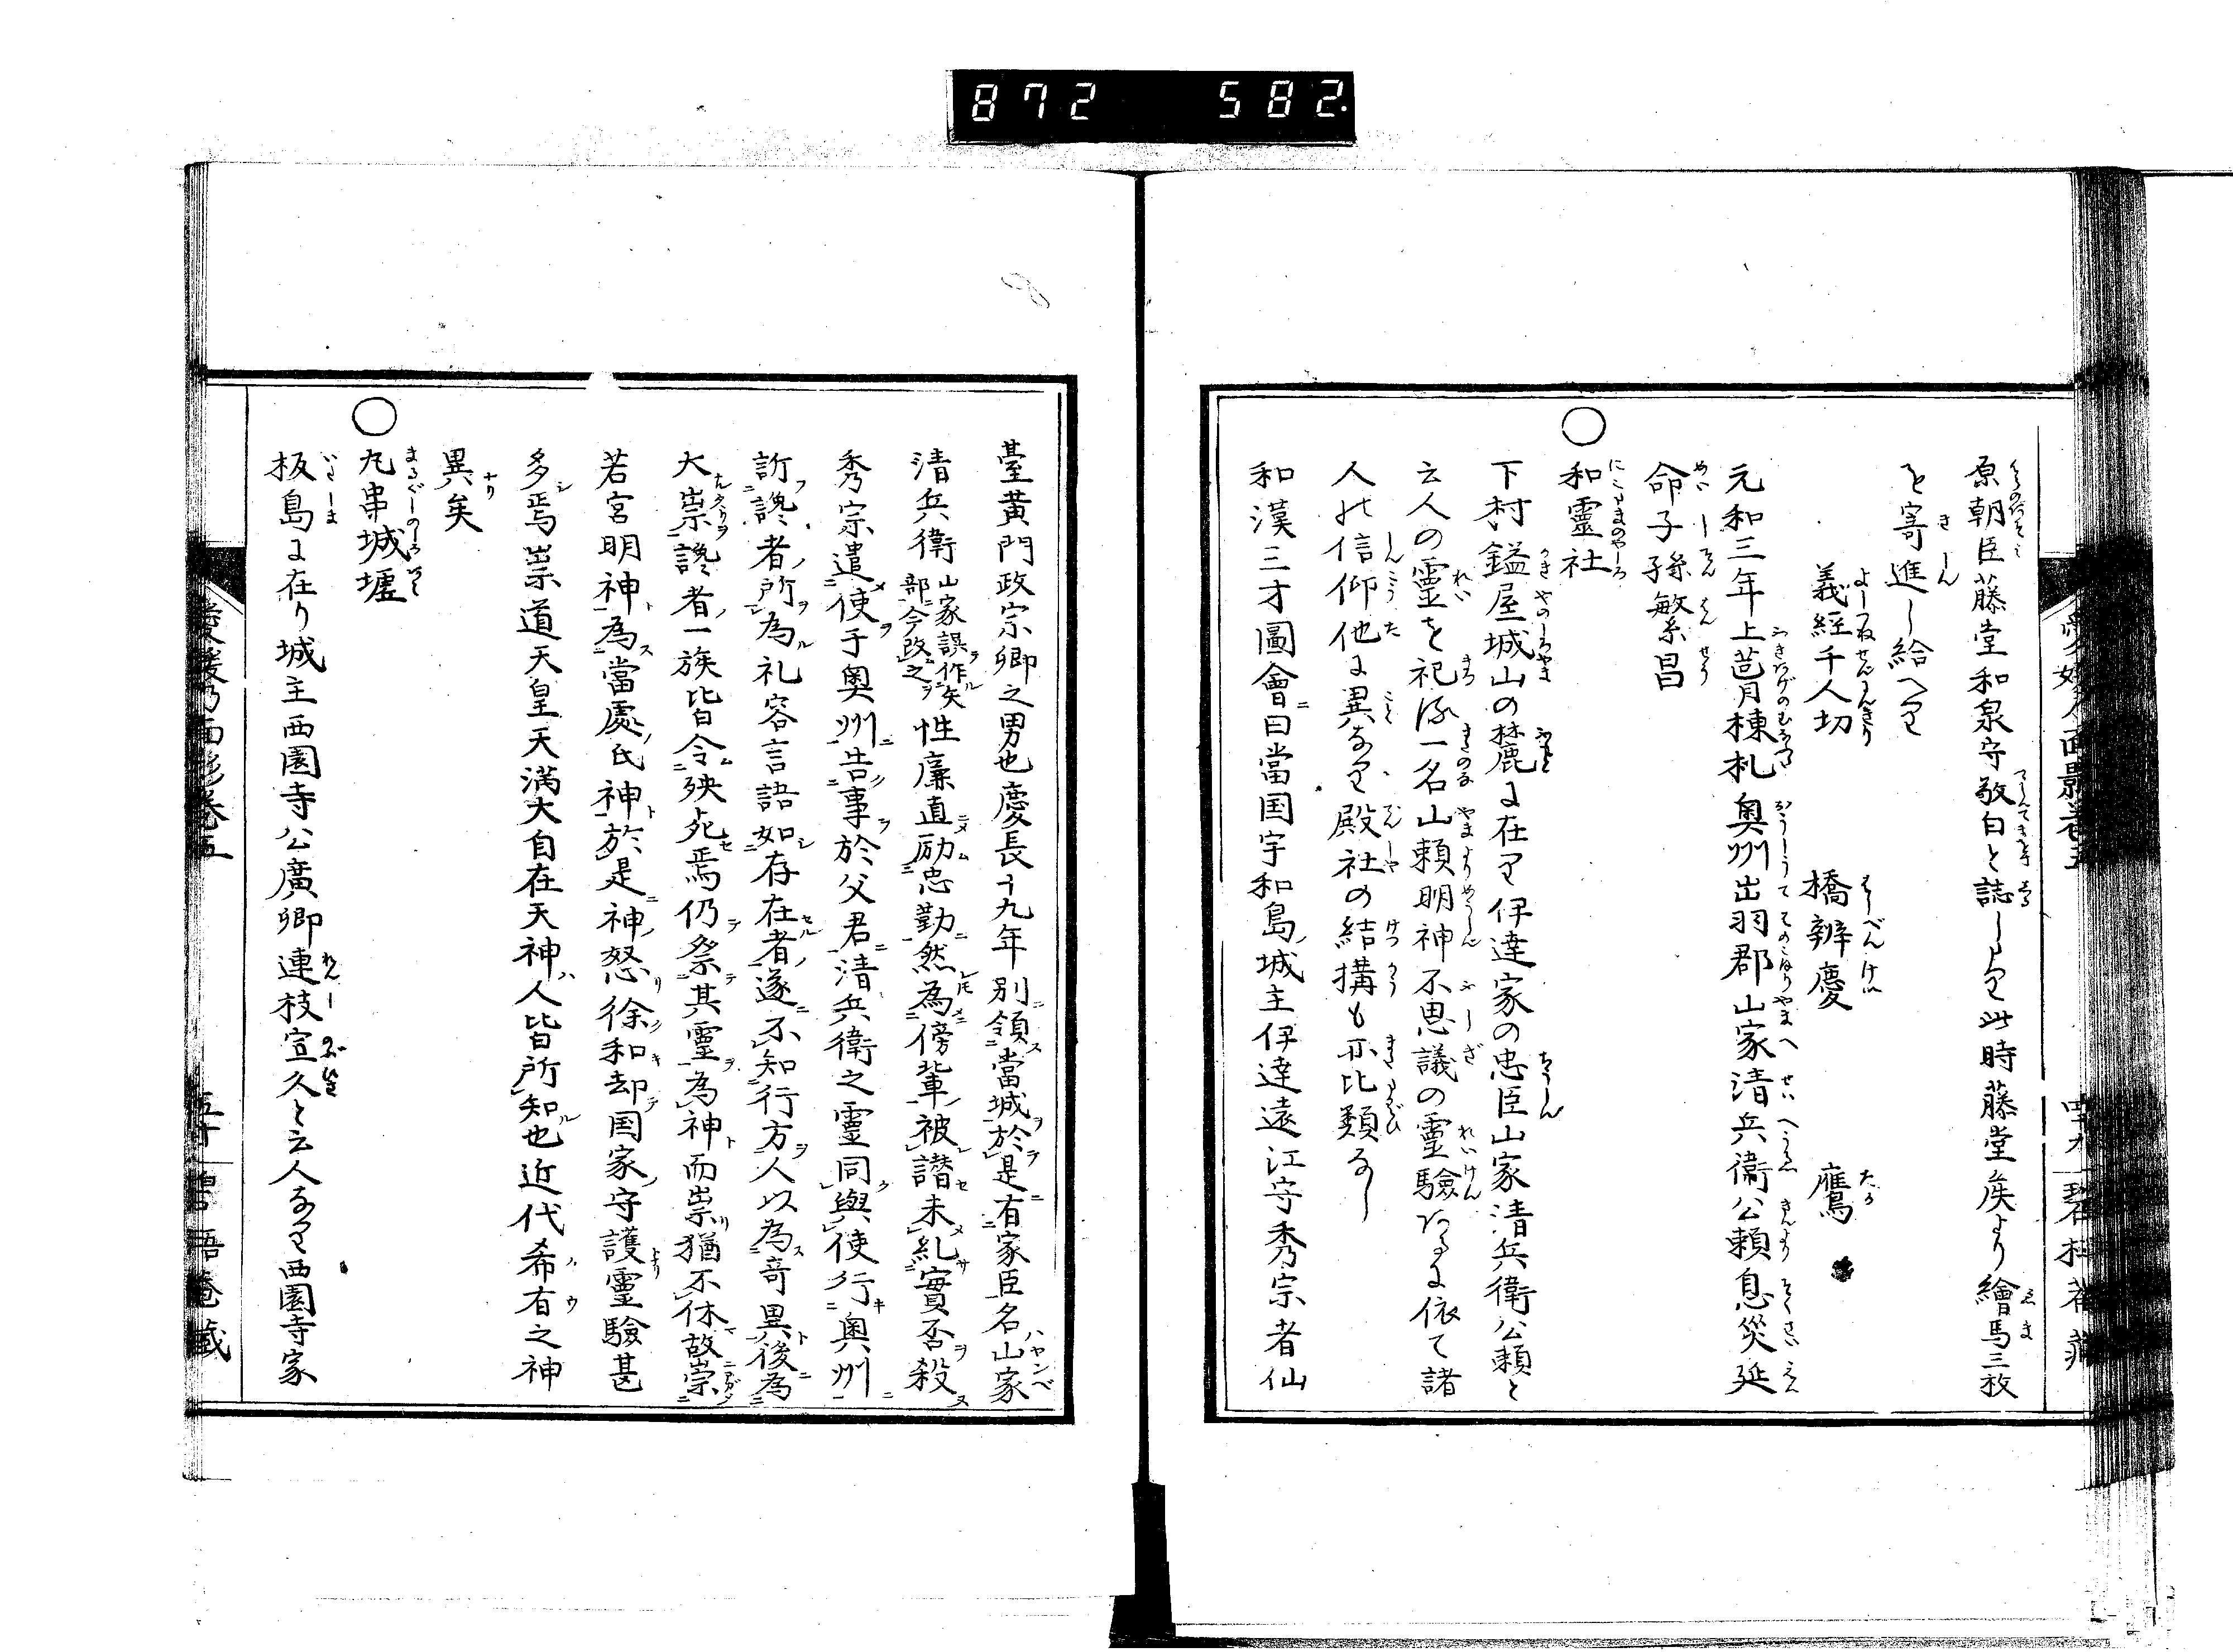 872 582
原朝臣藤堂和泉守敬白と誌しより此時藤堂矦より繪馬三枚
を寄進し給へり
義經千人切 橋辨慶 鷹
元和三年上䒭月棟札奥州出羽郡山家清兵衞公頼息災延
命子孫繁昌
○和靈社
下村鎰屋城山の麓に在り伊達家の忠臣山家清兵衛公頼と
云人の靈を祀る一名山頼明神不思議の靈驗あるに依て諸
人の信仰他に異なり殿社の結構も亦比類なし
和漢三才圖會ニ曰當国宇和島ノ城主伊達遠江守秀宗者仙
臺黄門政宗卿之男也慶長十九年別領當城於是有家臣名山家
清兵衛山家誤作矢部今改之性廉直励忠勤然為傍輩被譖未糺實否殺
秀宗遣使于奥州告事於父君清兵衛之靈同與使行奥州
訴讒者所為礼容言語如存在者遂不知行方人以為竒異後為
大祟讒者一族皆令殃死焉仍祭其靈為神而祟猶不休故崇
若宮明神為當處氏神於是神怒徐和却国家守護靈驗甚
多焉崇道天皇天満大自在天神人皆所知也近代希有之神
異矣
○丸串城墟
板島に在り城主西園寺公廣卿連枝宣久と云人なり西園寺家